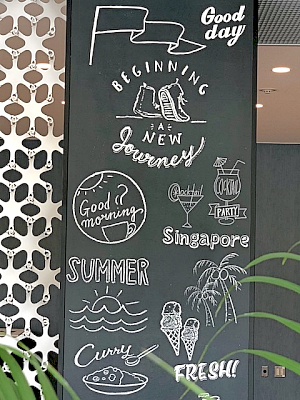 Good
day
BEGINNING
A
NEW
Journey
Good
morning
Cocktail
COCKTAIL
PARTY
Singapore
SUMMER
Curry
FRESH!